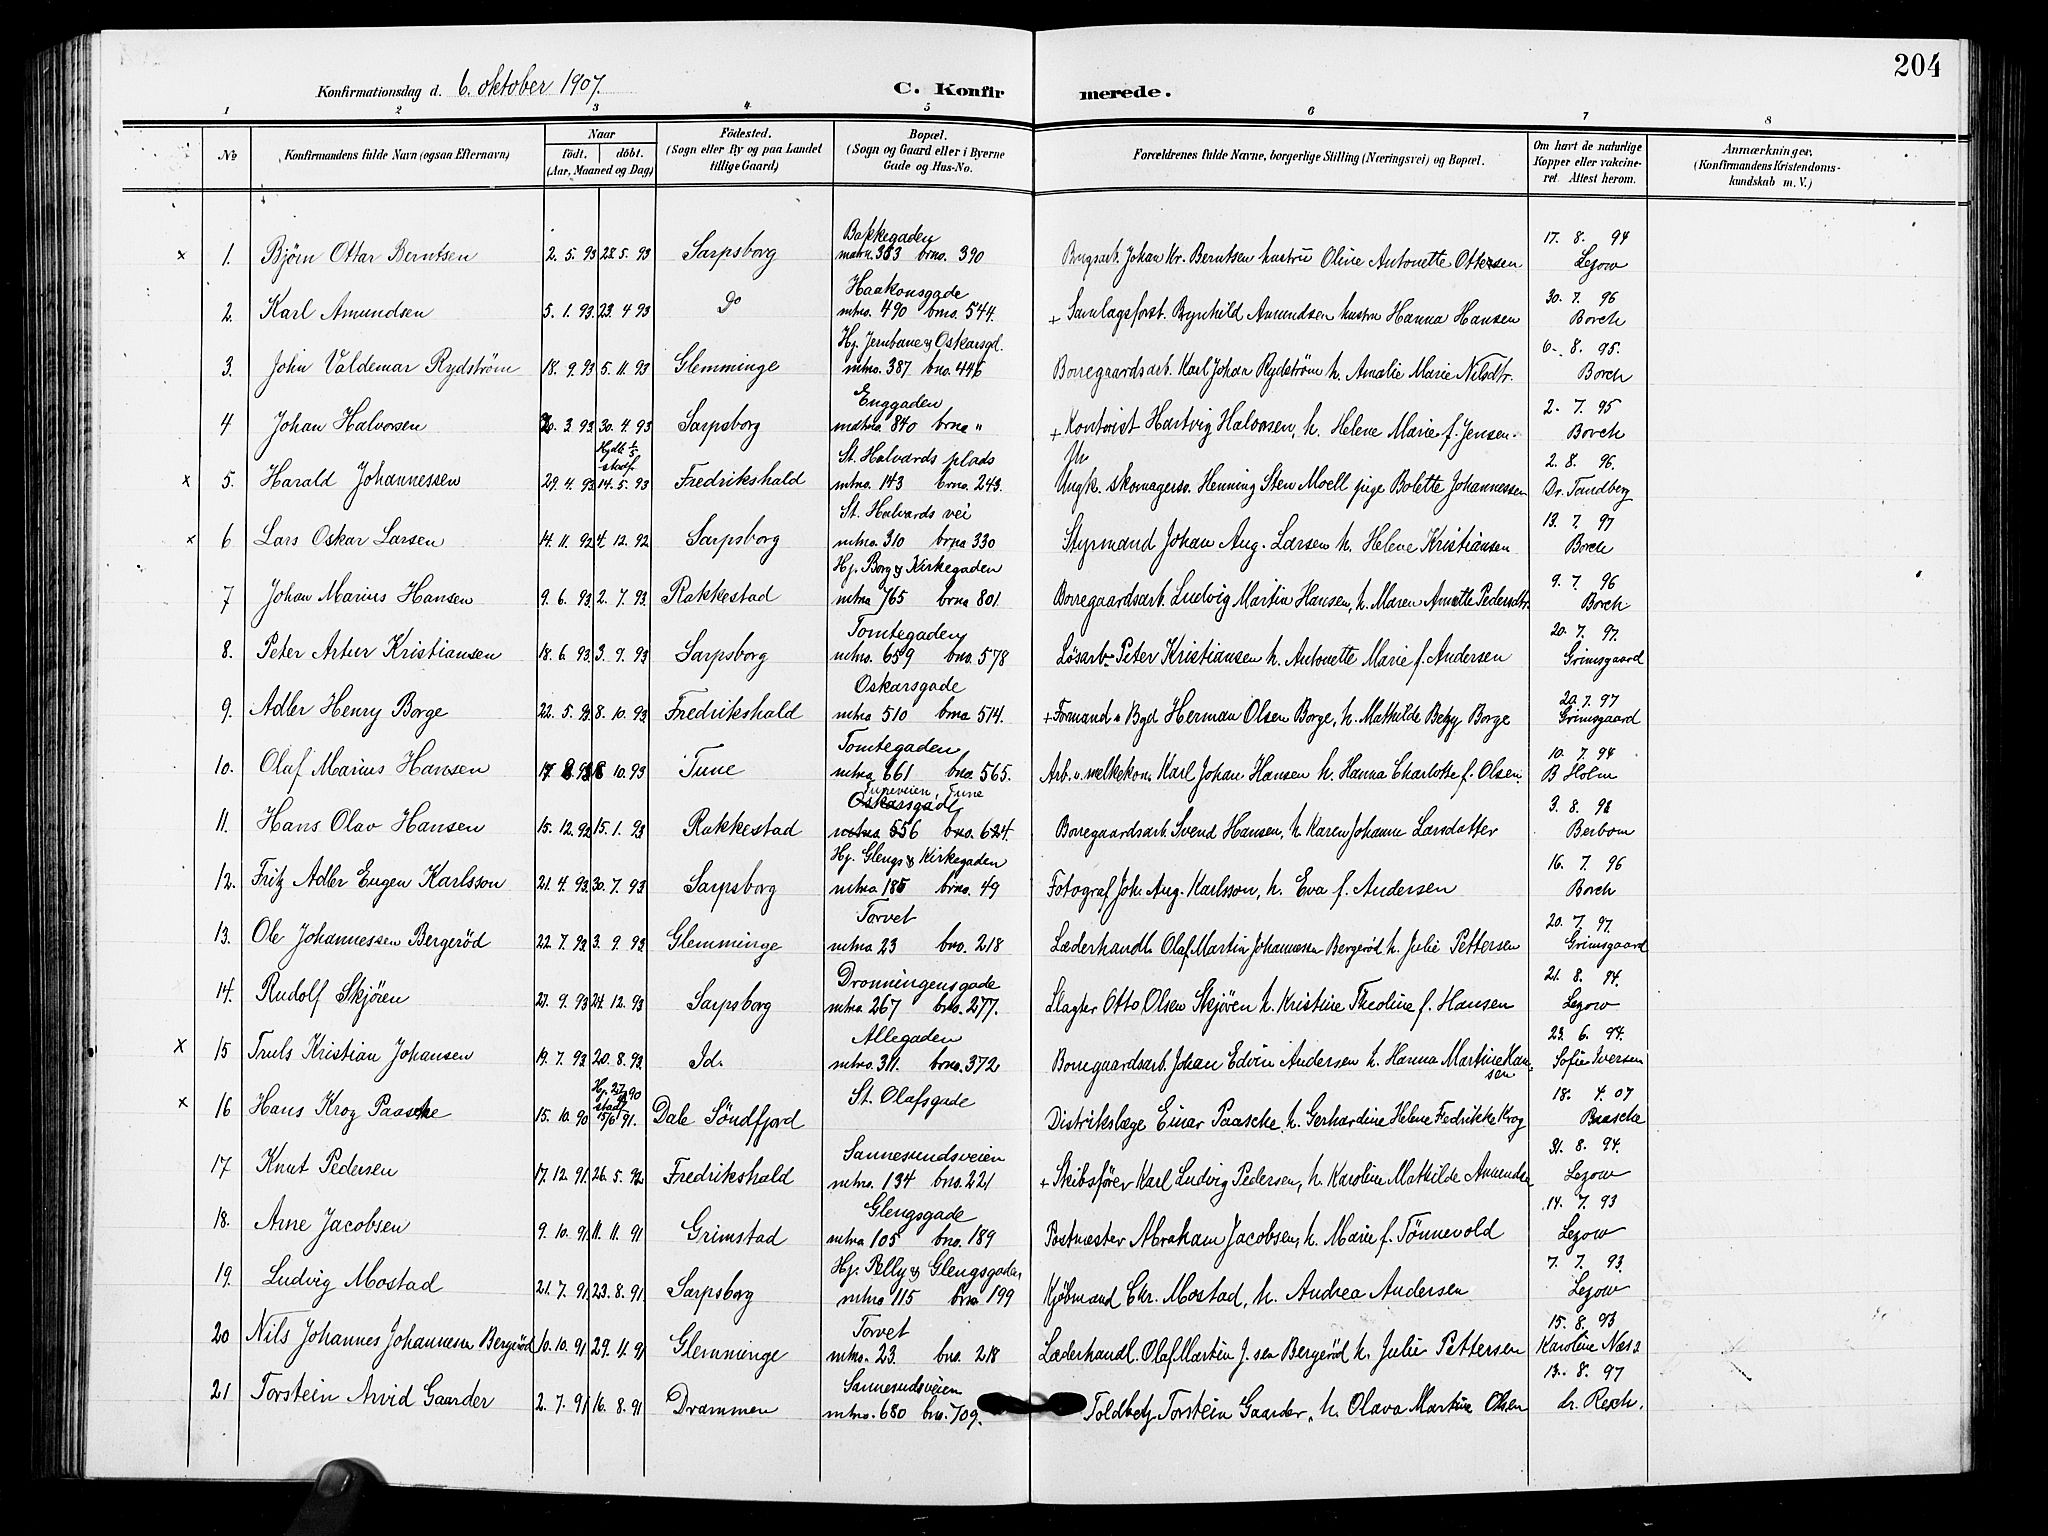 204
Konfirmationsdag d. 6. oktober 1907.
C. Konfirmerede.
1 2 3 4 5 6 7 8
No
Konfirmandens fulde Navn (ogsaa Efternavn)
Naar
födt. döbt.
(Aar, Maaned og Dag)
Födested.
(Sogn eller By og paa Landet
tillige Gaard)
Bopæl.
(Sogn og Gaard eller i Byerne
Gade og Hus-No.
Forældrenes fulde Navne, borgerlige Stilling (Næringsvei) og Bopæl.
Om havt de naturlige
Kopper eller vakcine-
ret. Attest herom.
Anmærkninger,
(Konfirmandens Kristendoms-
kundskab m. V.)
Bakkegaden 17. 8. 94
x 1. Bjørn Ottar Berntsen 2. 5. 93 28. 5. 93 Sarpsborg matrn. 383 brno. 390 Brugsarb. Johan Kr. Berntsen hustru Oline Antonette Ottersen Lezow
Haakonsgade 30. 7. 96
2. Karl Amundsen 5. 1. 93. 23. 4 93 Do mtno. 490 bno. 544. + Samlagsforst. Bynhild Amundsen hustru Hanna Hansen Borch
Hj. Jernbane & Oskarsgd. 6. 8. 95.
3. John Valdemar Rydström 18. 9. 93 5. 11. 93 Glemminge mtno. 387 bno. 446 Borregaardsarb. Karl Johan Rydström h. Amalie Marie Nilsdtr. Borch
Enggaden 2. 7. 95
4 Johan Halvorsen 20. 3. 93 30. 4. 93 Sarpsborg matno. 840 brno " + Kontorist Hartvig Halvorsen, h. Helene Marie f. Jensen. Borch
Hjdt 1/5 stadf. St. Halvards plads 2. 8. 96.
x 5. Harald Johannessen 29. 4. 93 14. 5. 93 Fredrikshald mtno. 143 brno. 243. Ungk. skomagersv. Henning Sten Moell pige Bolette Johannessen Dr. Tandberg
St. Halvards vei 13. 7. 97
x 6 Lars Oskar Larsen 14. 11. 92 4. 12. 92 Sarpsborg mtno. 310 brno 330 Styrmand Johan Aug. Larsen h. Helene Kristiansen Borch
Hj. Borg & Kirkegaden 9. 7. 96
7 Johan Marius Hansen 9. 6. 93 2. 7. 93. Rakkestad mtno 765 brno 801 Borregaardsarb. Ludvig Martin Hansen, h. Maren Anette Pedersdtr. Borch
Tomtegaden 20. 7. 97.
8. Peter Artur Kristiansen 18. 6. 93. 3. 9. 93 Sarpsborg mtno. 659 bno. 578 Løsarb. Peter Kristiansen h. Antonette Marie f. Andersen Grimsgaard
Oskarsgade 20. 7. 97
9. Adler Henry Borge 22. 5. 93 8. 10. 93 Fredrikshald mtno 510 brno 514. + Formand v Byd Herman Olsen Borge, h. Mathilde Betzy Borge Grimsgaard
Tomtegaden 10. 7. 94
10. Olaf Marius Hansen 17 8. 93 18 10. 93 Tune mtno 661 bno. 565. Arb. v. melkekon. Karl Johan Hansen h. Hanna Charlotte f. Olsen. B Holm
Tuneveien, Tune
Oskarsgade 3. 8. 98
11. Hans Olav Hansen 15. 12. 92 15. 1. 93 Rakkestad mtno 656 bno. 624. Borregaardsarb. Svend Hansen, h Karen Johanne Larsdatter Berbom
Hj. Glengs & Kirkegaden 16. 7. 96
12. Fritz Adler Eugen Karlsson 21. 4. 93 30. 7. 93 Sarpsborg mtno 185 brno. 49 Fotograf Joh. Aug. Karlsson, h. Eva f. Andersen Borch
Torvet 20. 7. 97.
13. Ole Johannessen Bergerød 22. 7. 93 3. 9. 93 Glemminge mtno 23 bno. 218 Læderhandl. Olaf Martin Johannessen Bergerød h. Julie Pettersen Grimsgaard
Dronningensgade 21. 8. 94.
14. Rudolf Skjøren 23. 9. 93 24. 12. 93 Sarpsborg mtno. 267 bno. 277. Slagter Otto Olsen Skjøren h. Kristine Theoline f. Hansen Lezow
Allegaden 23. 6. 94.
x 15 Truls Kristian Johansen 19. 7. 93 20. 8. 93. Id. mtno. 311. brno. 372 Borregaardsarb. Johan Edvin Andersen h. Hanna Martine Hansen Sofie Iversen
Hj. 27/90 stadf St. Olafsgade 18. 4. 07
x 16 Hans Krog Paasche 15. 10. 90 15/6 91. Dale Söndfjord Distriktslæge Einar Paasche h. Gerhardine Helene Fredrikke Krog Paasche
Sannesundsveien 31. 8. 94.
17 Knut Pedersen 17. 12. 91 26. 5. 92 Fredrikshald mtno. 134 bno. 221 + Skibsfører Karl Ludvig Pedersen, h. Karoline Mathilde Amundsen Lezow
Glengsgade 14. 7. 93
18. Arne Jacobsen 9. 10. 91 11. 11. 91 Grimstad mtno 105 bno. 189 Postmester Abraham Jacobsen, h. Marie f. Tönnevold Lezow
Hj. Pelly & Glengsgaden 7. 7. 93.
19. Ludvig Mostad 21. 7. 91 23. 8. 91 Sarpsborg mtno 115 brno 199 Kjøbmand Chr. Mostad, h. Andrea Andersen Lezow
Torvet 15. 8. 93
20 Nils Johannes Johannessen Bergerød 10. 10. 91 29. 11. 91 Glemminge mtno. 23. bno. 218 Læderhandl. Olaf Martin J. sen Bergerød h. Julie Pettersen Karoline Næss
Sannesundsveien 13. 8. 97
21 Torstein Arvid Gaarder 2. 7. 91 16. 8. 91 Drammen mtno. 680 bno. 709. Toldbetj Torstein Gaarder, h. Olava Martine Olsen dr. Rexh.